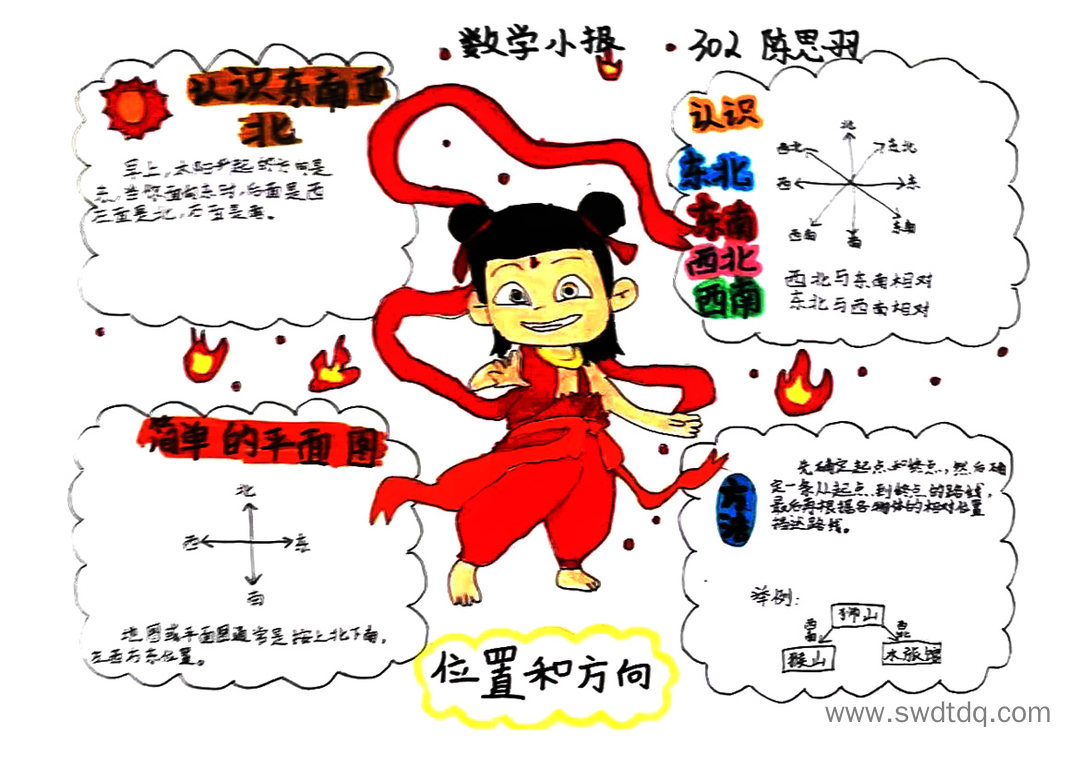 数学小报
302 陈思羽
认识东南西
北
早上,太阳升起的方向是
东,当你面向东时,后面是西
左面是北,右面是南。
认识
东北
东南
西北
西南
北
西北
东北
西
东
西南
南
东南
西北与东南相对
东北与西南相对
简单的平面图
北
西
东
南
地图或平面图通常是按上北下南,
左西右东位置。
方法
先确定起点和终点,然后确
定一条从起点到终点的路线,
最后再根据各物体的相对位置
描述路线。
举例:
狮山
西南
西北
猴山
水族馆
位置和方向
www.swdtdq.com